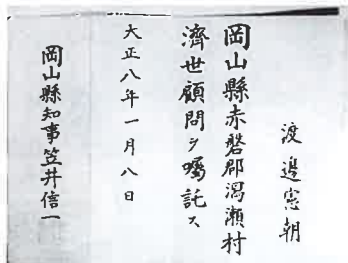 渡邉憲朝
岡山縣赤磐郡潟瀬村
濟世顧問ヲ囑託ス
大正八年一月八日
岡山縣知事笠井信一